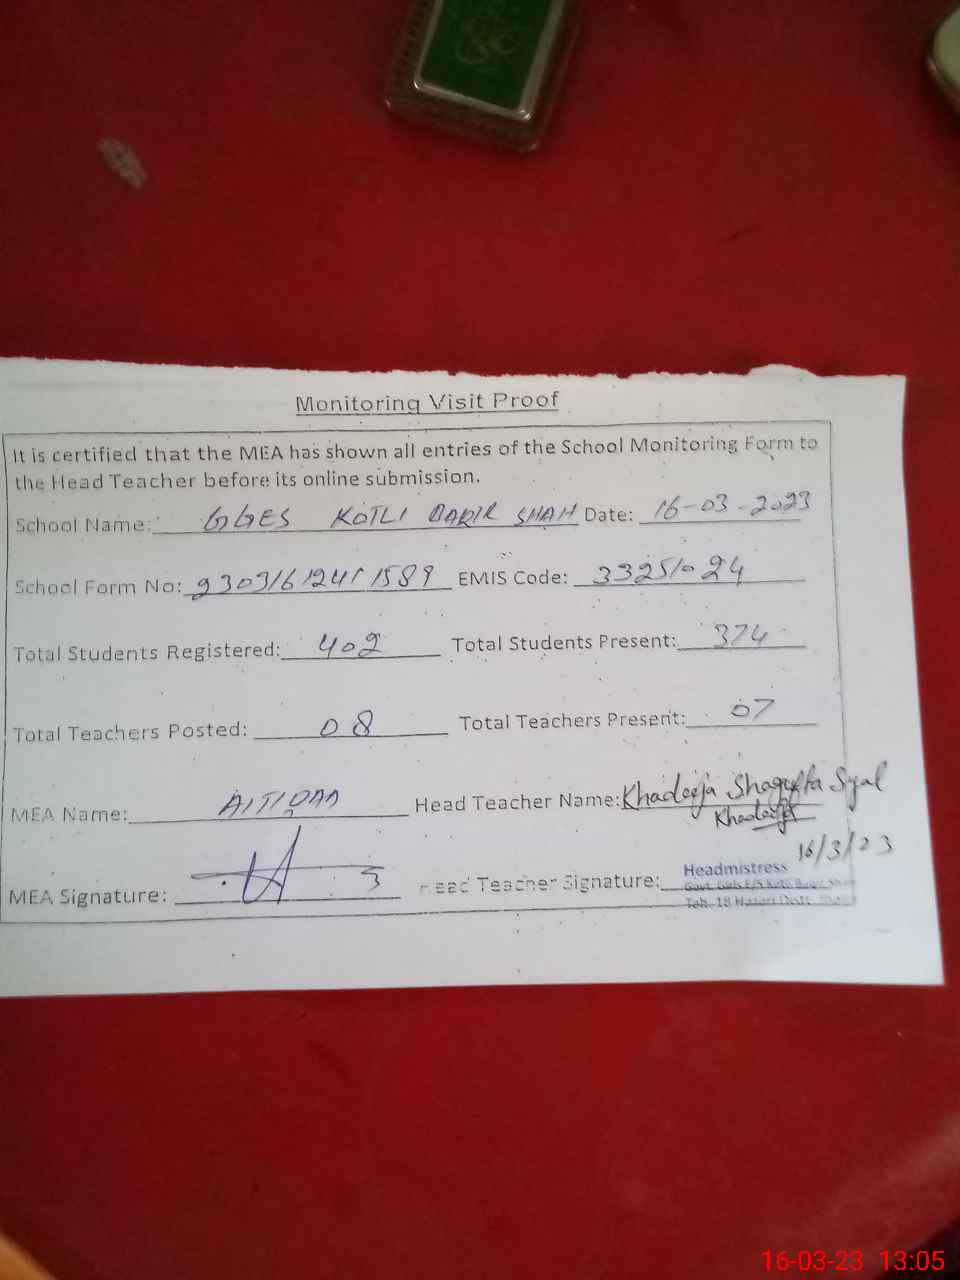 Monitoring Visit Proof
It is certified that the MEA has shown all entries of the School Monitoring Form to
the Head Teacher before its online submission.
School Name: GGES KOTLI BAQIR SHAH Date: 16-03-2023
School Form No: 230316124111589 EMIS Code: 33251024
Total Students Registered: 402 Total Students Present: 374
Total Teachers Posted: 08 Total Teachers Present: 07
MEA Name: Head Teacher Name: Khadeeja Shagufta Syal
Khadeeja
16/3/23
MEA Signature: Head Teacher Signature: Headmistress
Govt. Girls E/S Kotli Baqir Shah
Teh. 18 Hazari Distt. Jhang
16-03-23 13:05